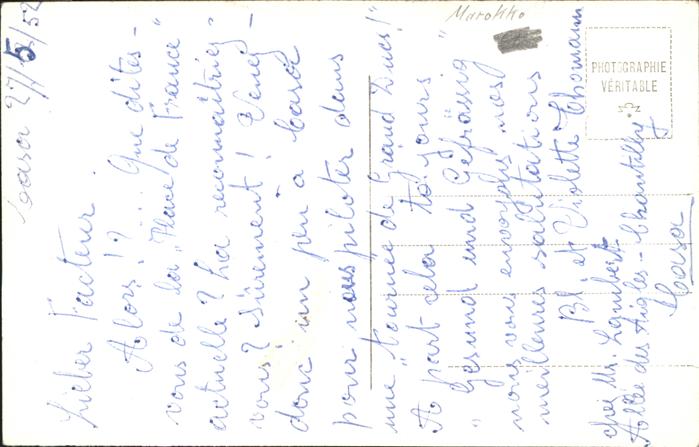 Marokko
PHOTOGRAPHIE
VÉRITABLE
Casa 27/5/52
Lieber Facteur.
Alors!? ... Que dites-
vous de la "Place de France"
actuelle? La reconnaîtriez-
vous? Sûrement! Venez
donc un peu à Casa
pour nous piloter dans
une "tournée de Grand Duc!"
A part cela to yours
"Gesund und Gefrässig"
nous vous envoyons nos
meilleures salutations
Bl. et Violette
chez Mr. Lambert
Allée des Aigles - Chantilly
Casa